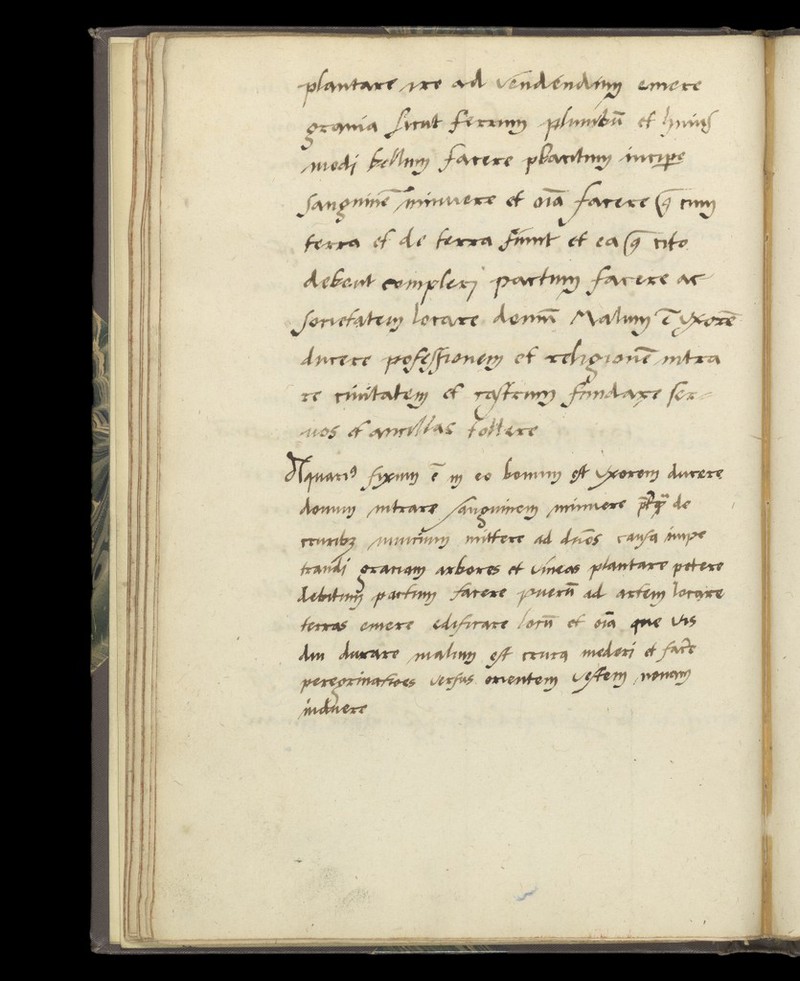 plantare ire ad vēndēndum emere
grauia sicut ferrum plumbū et huius
modi bellum facere placitum incipe
sanguinē minuere et oīa facere q̄ cum
terra et de terra fiunt et ea q̄ cito
debent compleri pactum facere ac
societatem locare domū Malum ē vxorē
ducere professionem et religionē intra
re ciuitatem et castrum fundare ser-
uos et ancillas tollere
Aquarius fixum ē in eo bonum est vxorem ducere
domum intrare sanguinem minuere de
cruribꝫ nuncium mittere ad dnōs causa impe
trandi gratiam arbores et vineas plantare petere
debitum pactum facere puerū ad artem locare
terras emere edificare locū et oīa que vis
diu durare malum est crura mederi et facēr
peregrinatioēs versus orientem vestem nouam
induere